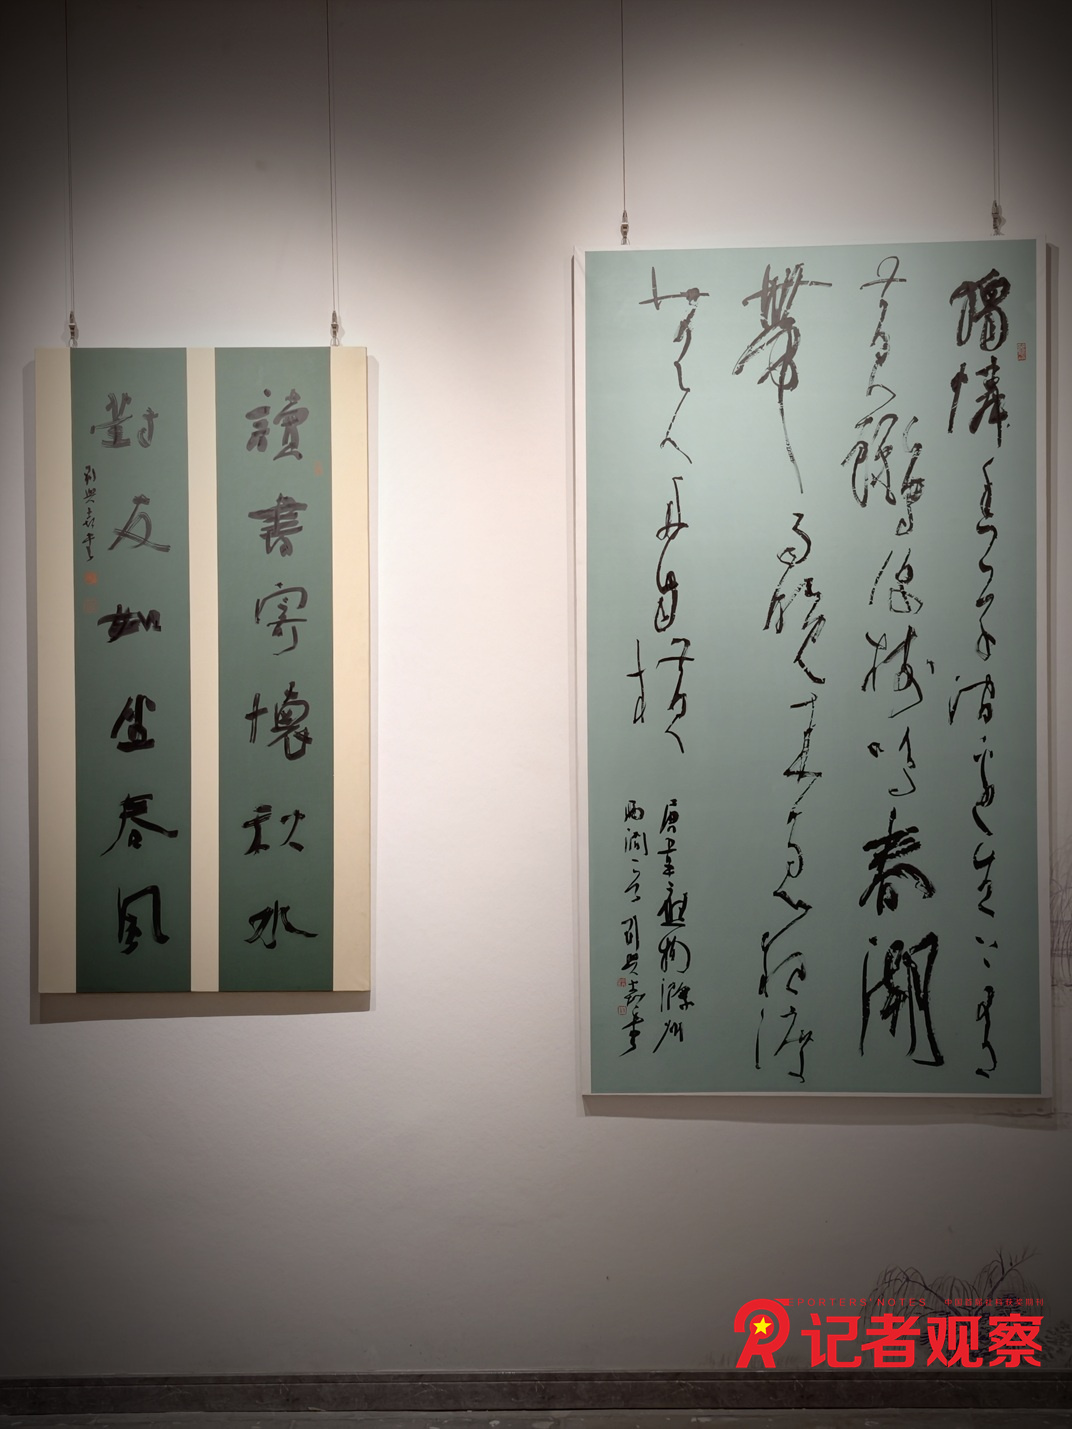 獨憐幽草澗邊生上有
黃鸝深樹鳴春潮
帶雨晚來急野渡
無人舟自橫
唐韋應物滁州
西澗一首
讀書寄懷秋水
對友如坐春風
PORTERS' NOTES
记者观察